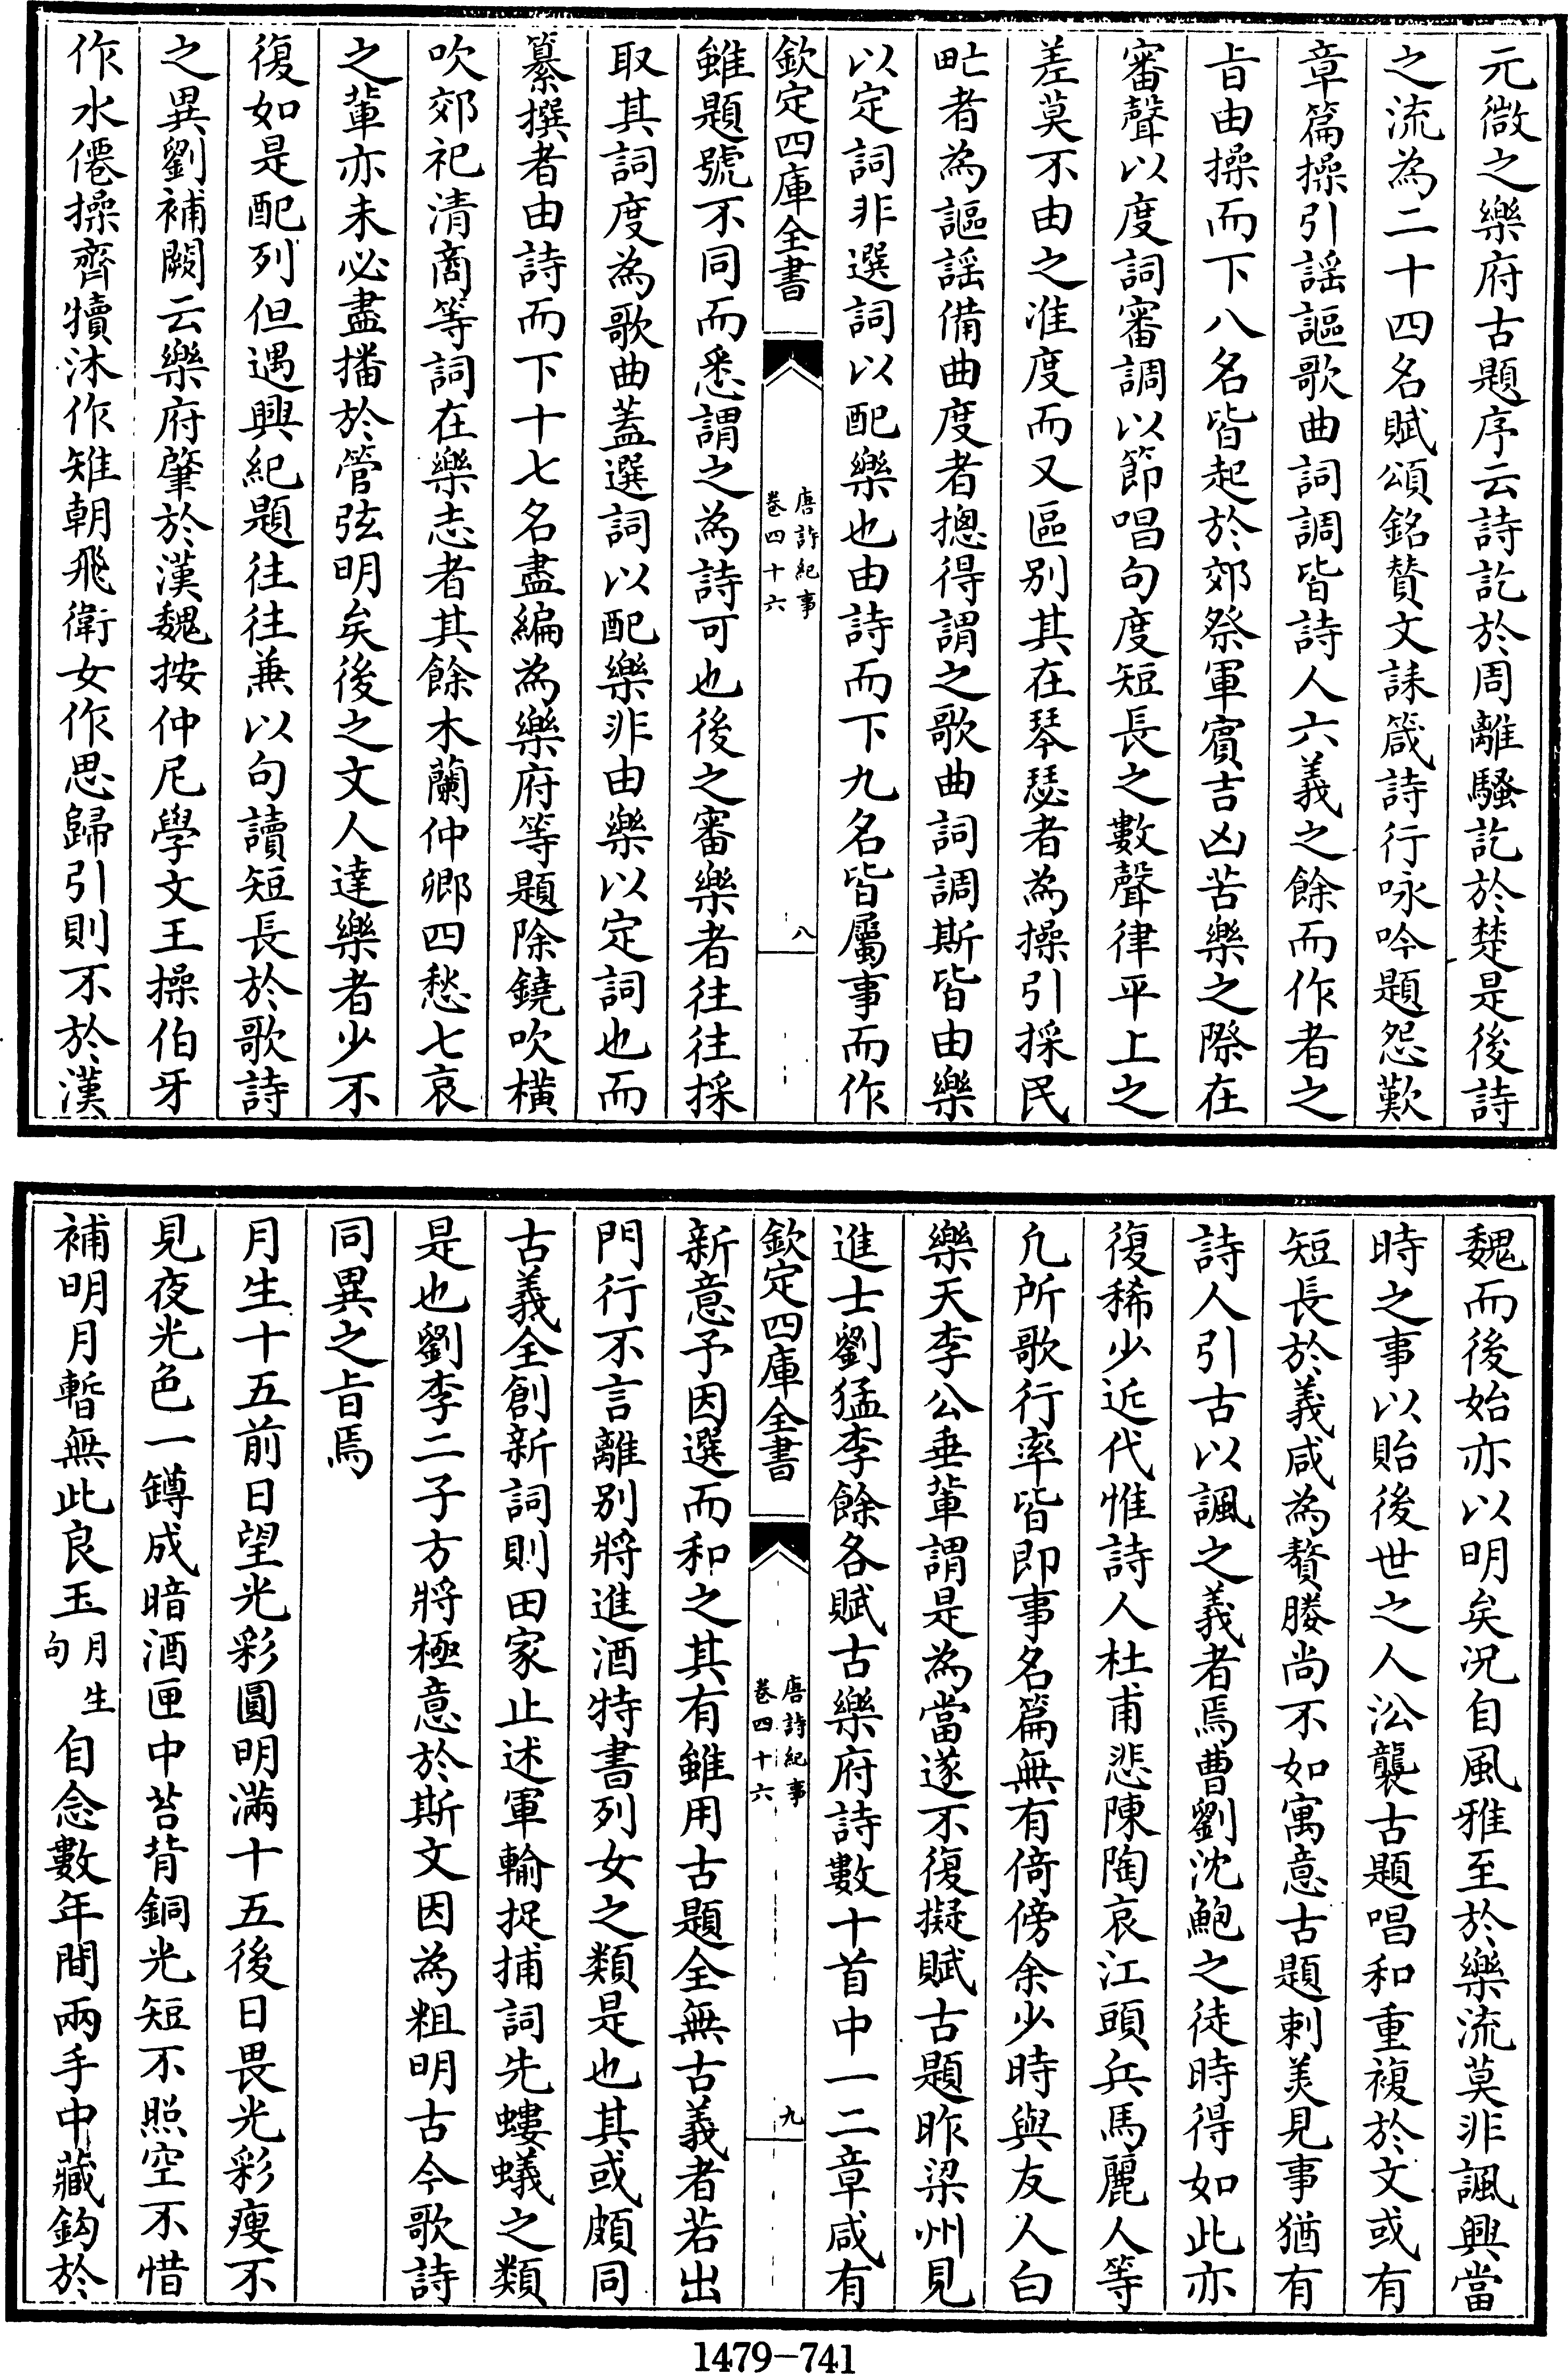 元微之樂府古題序云詩訖於周離騷訖於楚是後詩
之流為二十四名賦頌銘贊文誄箴詩行咏吟題怨歎
章篇操引謡謳歌曲詞調皆詩人六義之餘而作者之
㫖由操而下八名皆起於郊祭軍賓吉凶苦樂之際在
審聲以度詞審調以節唱句度短長之數聲律平上之
差莫不由之准度而又區别其在琴瑟者為操引採民
甿者為謳謡備曲度者摠得謂之歌曲詞調斯皆由樂
以定詞非選詞以配樂也由詩而下九名皆屬事而作
欽定四庫全書
唐詩紀事
卷四十六
八
雖題號不同而悉謂之為詩可也後之審樂者往往採
取其詞度為歌曲蓋選詞以配樂非由樂以定詞也而
纂撰者由詩而下十七名盡編為樂府等題除鐃吹橫
吹郊祀清商等詞在樂志者其餘木蘭仲卿四愁七哀
之輩亦未必盡播於管弦明矣後之文人達樂者少不
復如是配列但遇興紀題往往兼以句讀短長於歌詩
之異劉補闕云樂府肇於漢魏按仲尼學文王操伯牙
作水僊操齊犢沐作雉朝飛衛女作思歸引則不於漢
魏而後始亦以明矣况自風雅至於樂流莫非諷興當
時之事以貽後世之人㳂襲古題唱和重複於文或有
短長於義咸為贅賸尚不如寓意古題刺美見事猶有
詩人引古以諷之義者焉曹劉沈鮑之徒時得如此亦
復稀少近代惟詩人杜甫悲陳陶哀江頭兵馬麗人等
凡所歌行率皆即事名篇無有倚傍余少時與友人白
樂天李公垂輩謂是為當遂不復擬賦古題昨梁州見
進士劉猛李餘各賦古樂府詩數十首中一二章咸有
欽定四庫全書
唐詩紀事
卷四十六
九
新意予因選而和之其有雖用古題全無古義者若出
門行不言離别將進酒特書列女之類是也其或頗同
古義全創新詞則田家止述軍輸捉捕詞先螻蟻之類
是也劉李二子方將極意於斯文因為粗明古今歌詩
同異之㫖焉
月生十五前日望光彩圓明滿十五後日畏光彩瘦不
見夜光色一罇成暗酒匣中苔背銅光短不照空不惜
補明月暫無此良玉月生句自念數年間兩手中藏鈎於
1479-741